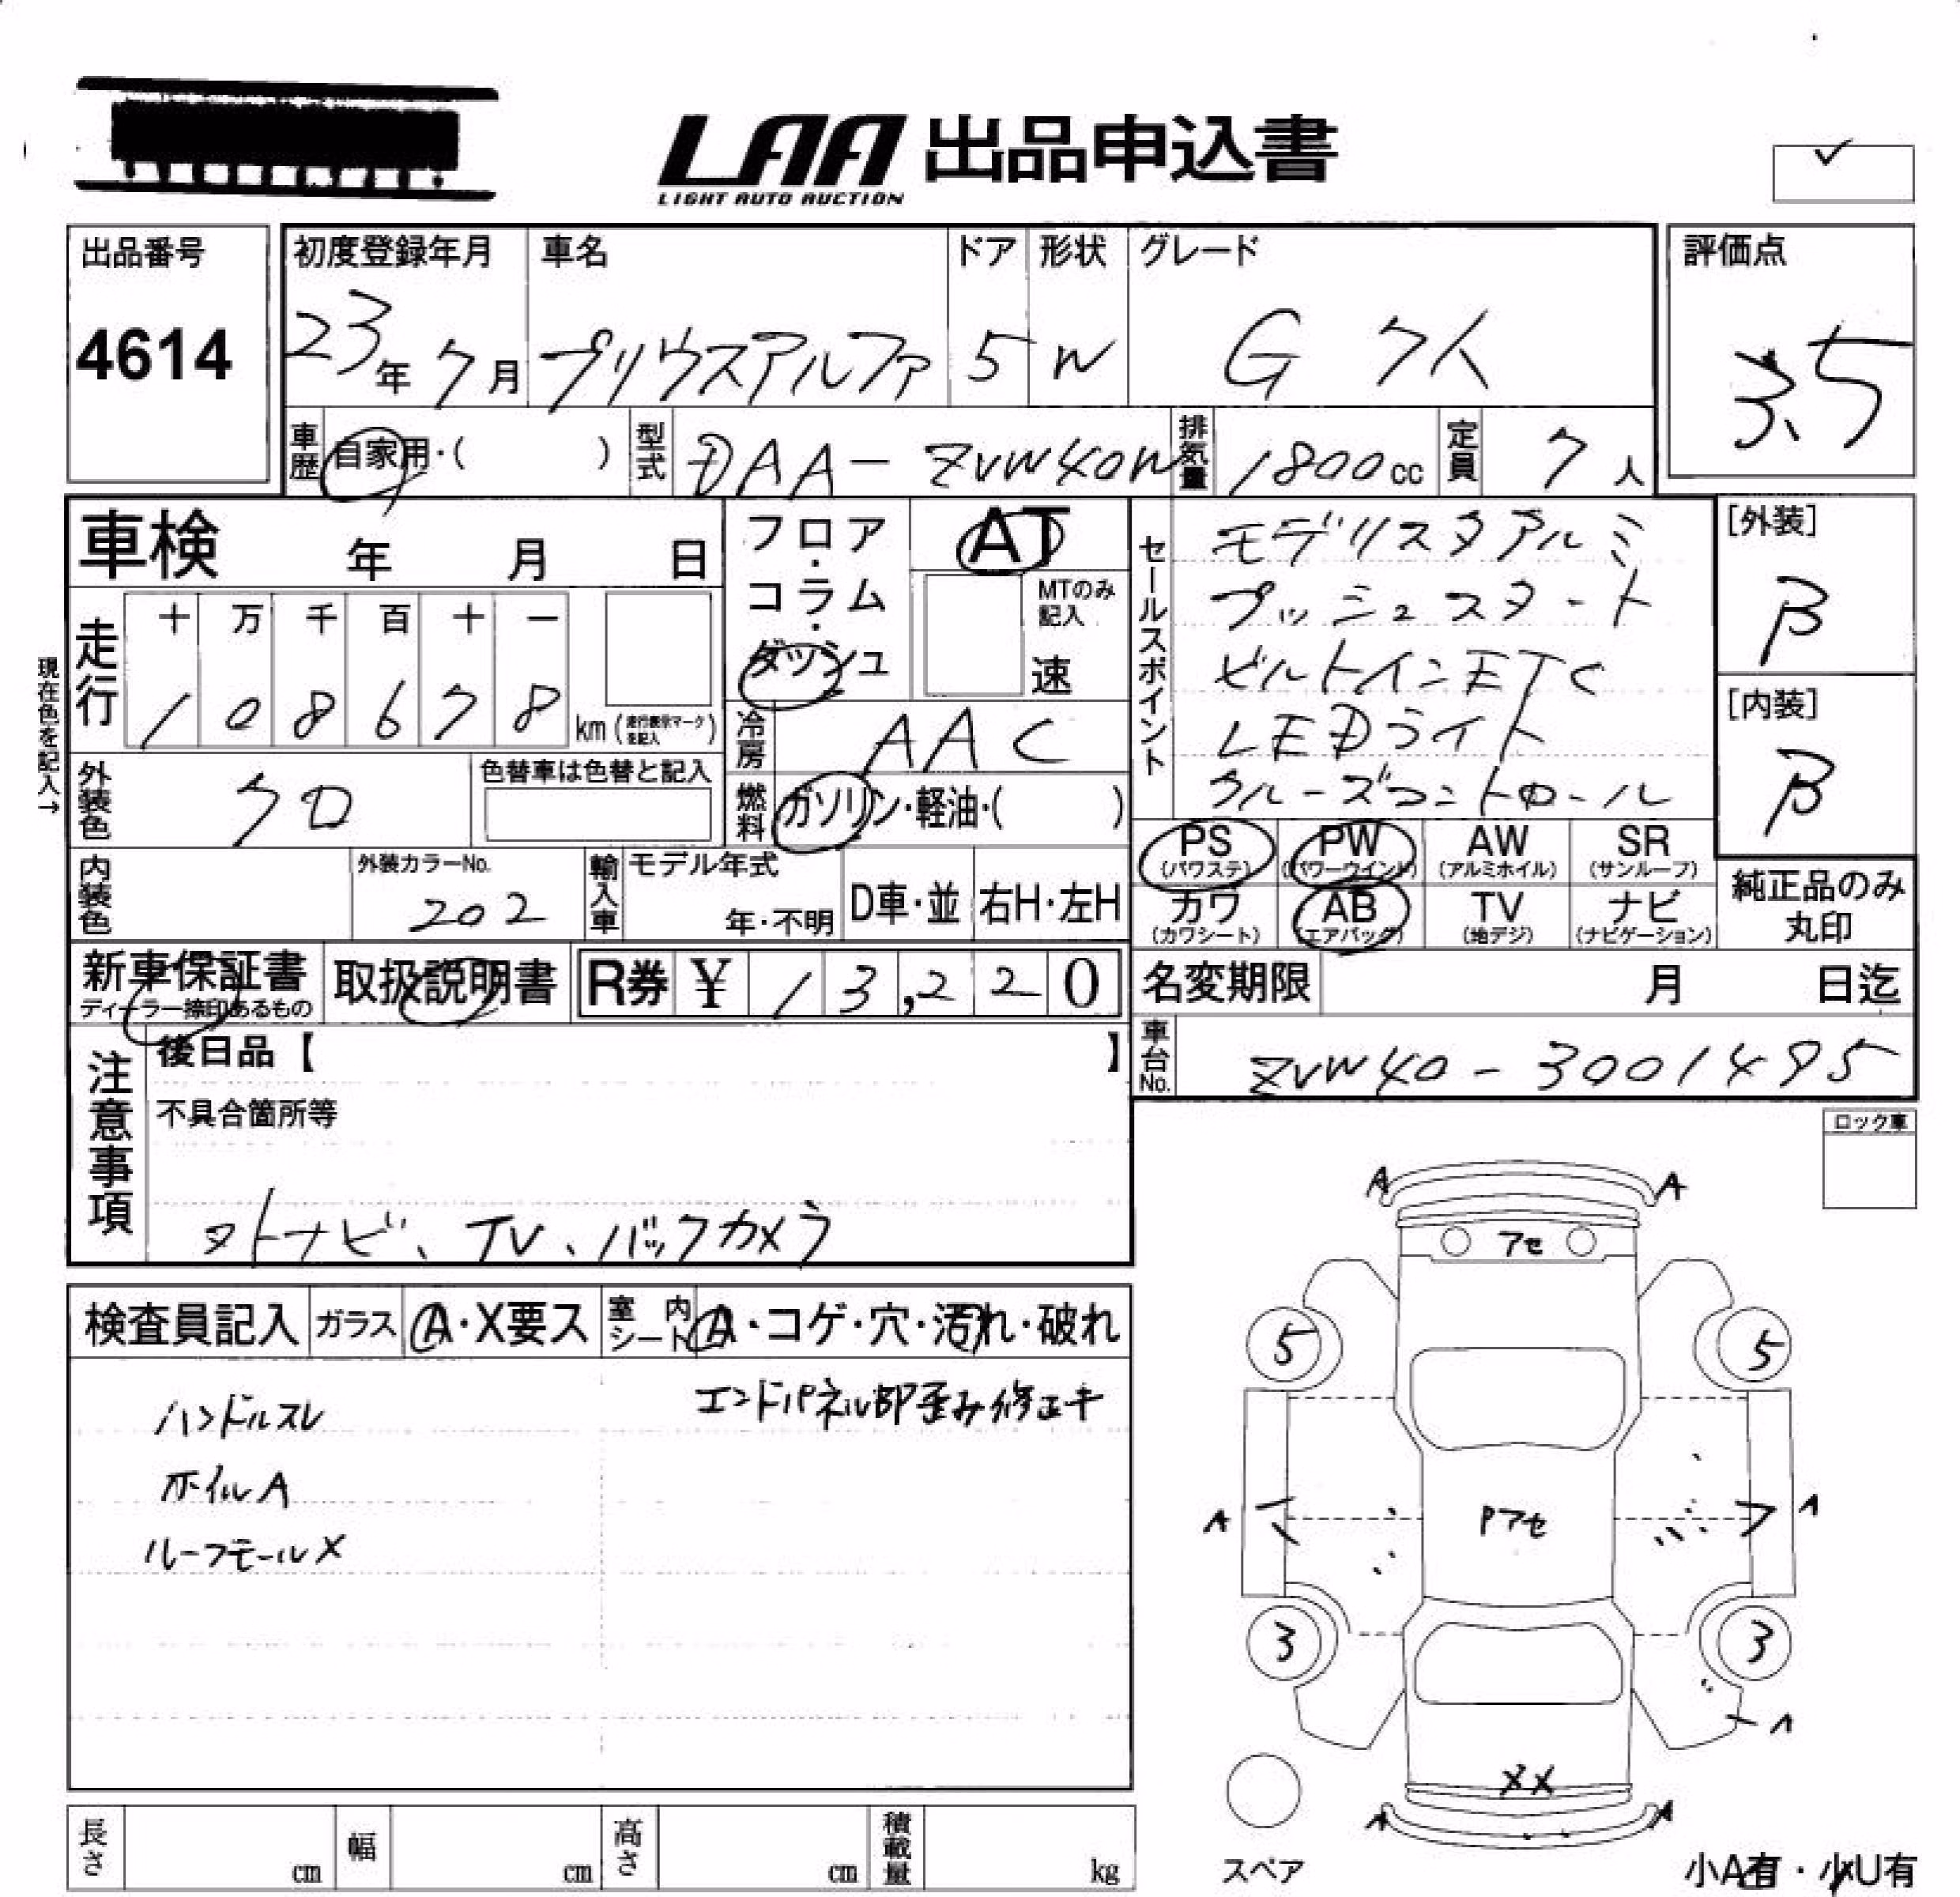 LAA 出品申込書
LIGHT AUTO AUCTION
出品番号
4614
初度登録年月
23年7月
車名
プリウスアルファ
ドア
5
形状
W
グレード
G 7人
評価点
3.5
車歴
自家用・( )
型式
DAA-ZVW40W
排気量
1800cc
定員
7人
車検 年 月 日
フロア・コラム・ダッシュ
AT
MTのみ記入
速
セールスポイント
モデリスタアルミ
プッシュスタート
ビルトインETC
LEDライト
クルーズコントロール
[外装]
B
[内装]
B
現在色を記入→
走行
十 万 千 百 十 一
1 0 8 6 7 8 km (走行表示マークを記入)
冷房
AAC
外装色
クロ
色替車は色替と記入
燃料
ガソリン・軽油・( )
PS (パワステ)
PW (パワーウインド)
AW (アルミホイル)
SR (サンルーフ)
カワ (カワシート)
AB (エアバッグ)
TV (地デジ)
ナビ (ナビゲーション)
純正品のみ丸印
内装色
外装カラーNo.
202
輸入車
モデル年式
年・不明
D車・並
右H・左H
新車保証書
ディーラー捺印あるもの
取扱説明書
R券 ¥ 13,220
名変期限 月 日迄
車台No.
ZVW40-3001495
注意事項
後日品【 】
不具合箇所等
ヌトナビ、TV、バックカメラ
ロック車
検査員記入
ガラス
A・X要ス
室内シート
A・コゲ・穴・汚れ・破れ
ハンドルスレ
ホイルA
ルーフモールX
エンドパネル部歪み修正キ
A A
アセ
5 5
A A
Pアセ
3 3
A
XX
A A
スペア
小A有・小U有
長さ cm
幅 cm
高さ cm
積載量 kg